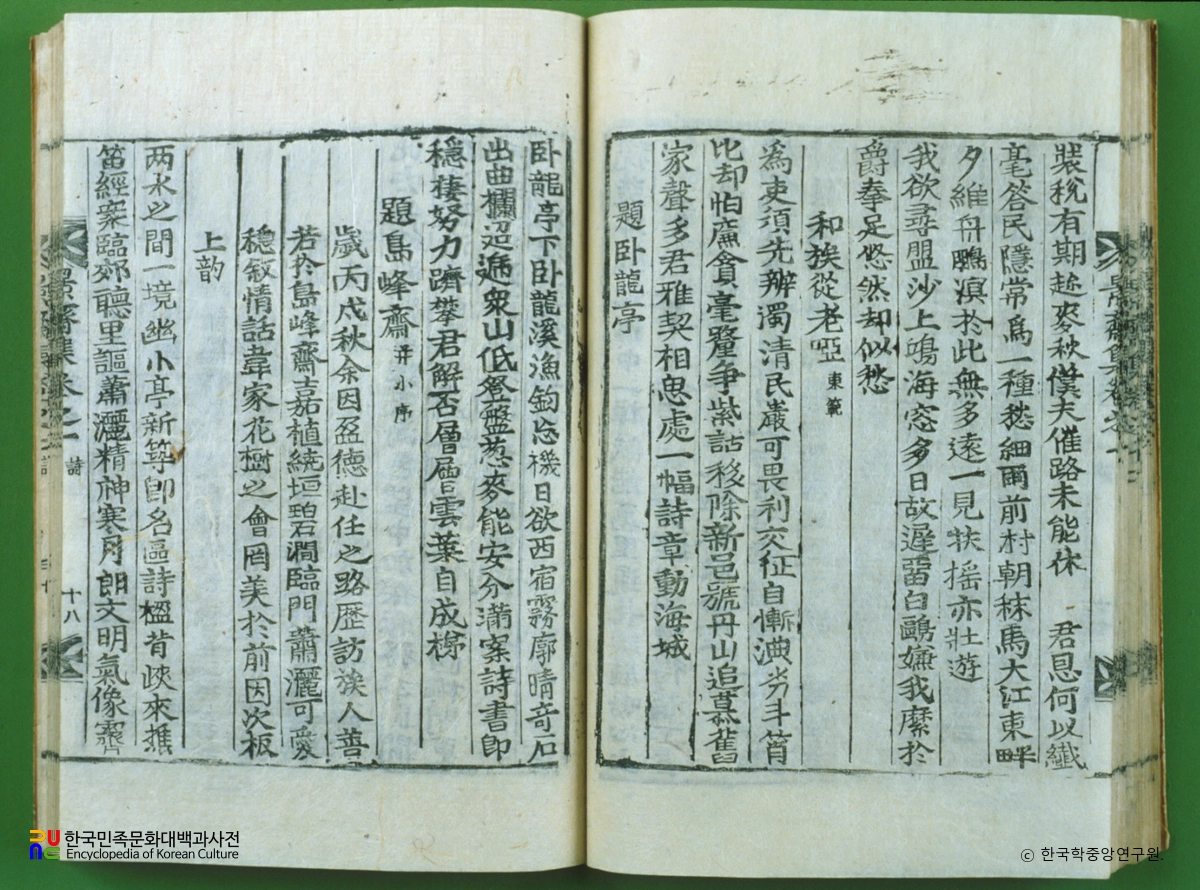 裝稅有期趂麥秋僕夫催路未能休 君恩何以纖
毫答民隱常爲一種愁細雨前村朝秣馬大江東畔
夕維舟鵬溟於此無多遠一見扶搖亦壯遊
我欲尋盟沙上鳴海窓多日故遲留白鷗嫌我縻於
爵奉足悠然却似愁
和族從老啞東範
爲吏須先辨濁清民巖可畏利交征自慚 劣斗筲
比却怕廉貪毫釐爭紫詔移除新邑號丹山追慕舊
家聲多君雅契相思處一幅詩章動海城
題卧龍亭
卧龍亭下卧龍溪漁釣忘機日欲西宿霧廓晴奇石
出曲欄迢遞衆山低登盤葱麥能安分滿案詩書卽
穩棲努力躋攀君解否層層雲葉自成梯
題島峰齋并小序
歲丙戌秋余因盈德赴任之路歷訪族人善
若於島峰齋嘉植繞垣碧澗臨門蕭灑可愛
穩敍情話韋家花樹之會罔美於前因次板
上韵
两水之間一境幽小亭新筭卽名區詩 昔 來推
笛經案臨郊聽里謳蕭灑精神寒月朗文明氣像
齋集卷之一 詩 十八
한국민족문화대백과사전
Encyclopedia of Korean Culture
ⓒ 한국학중앙연구원.